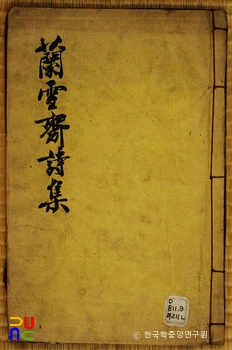 蘭雪齋詩集
D
811.9
ⓒ 한국학중앙연구원